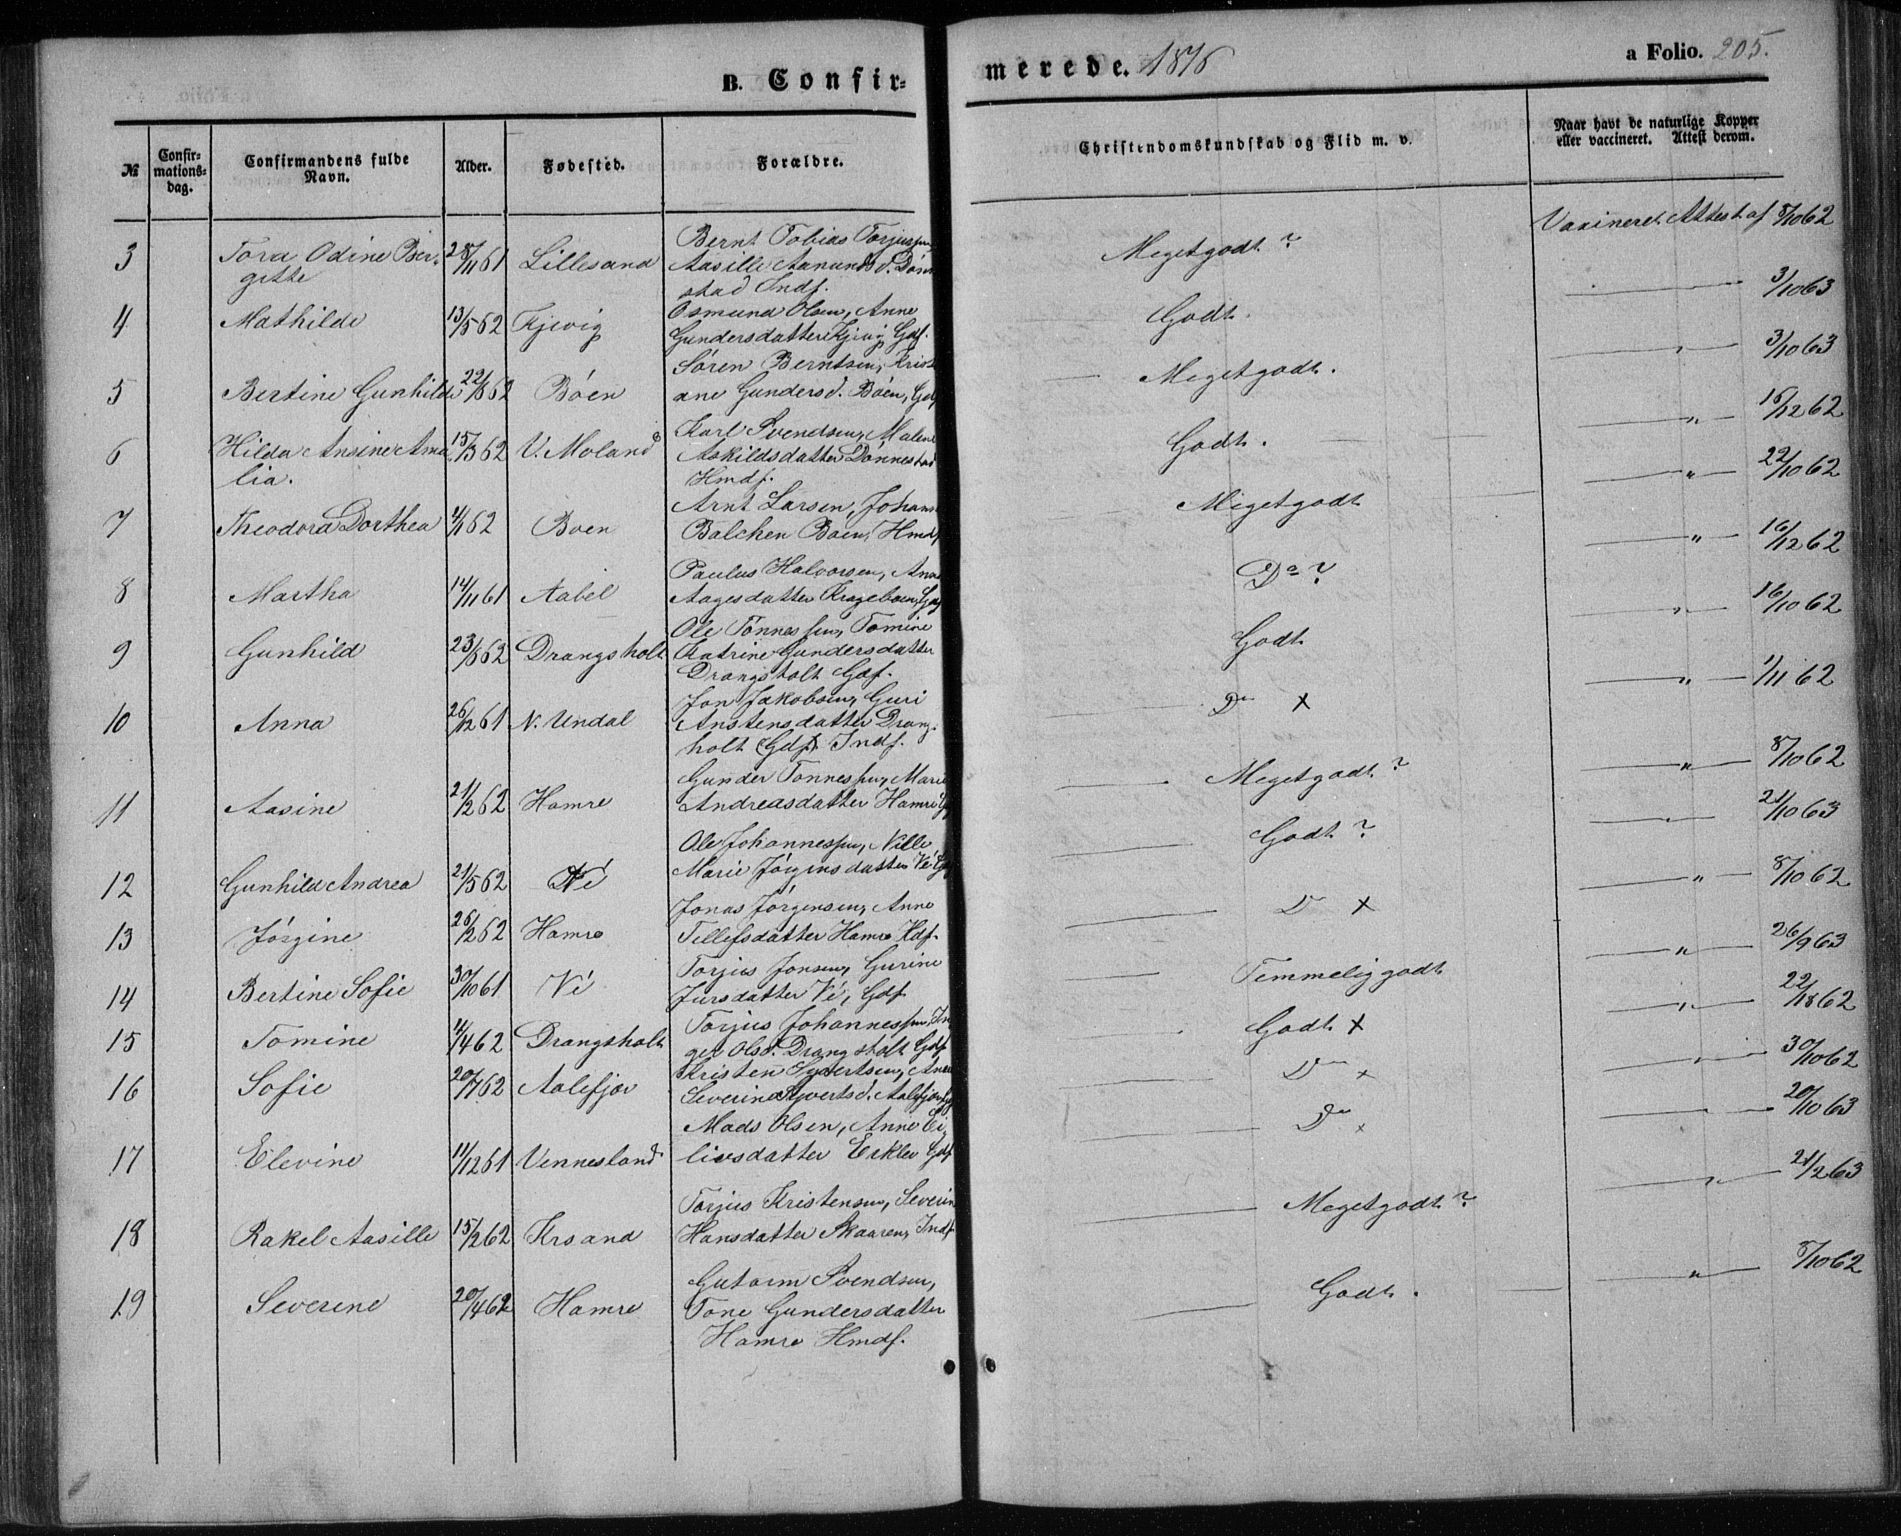 B. Confir-
merede. 1876
a Folio. 205.
№
Confir-
mations-
dag.
Confirmandens fulde
Navn.
Alder.
Fødested.
Forældre.
Christendomskundskab og Flid m. v.
Naar havt de naturlige Kopper
eller vaccineret. Attest derom.
3 Tora Odine Ber- 28/11 61 Lillesand Bernt Tobias Torjussen Megetgodt ? Vaxineret Attest af 8/10 62
gitte Aasille Aanunds d. Dønne
stad Indf.
4 Mathilde 13/5 62 Kjevig Osmund Olsen, Anne Godt. 3/10 63
Gundersdatter Kjevig Gdf.
5 Bertine Gunhilde 22/8 62 Bóen Søren Berntsen, Krist Megetgodt. " 3/10 63
ane Gundersd. Bóen, Gdf
6 Hilda Ansine Ama 15/3 62 V. Moland Karl Svendsen, Malene Godt. " 18/12 62
lia. Askildsdatter Dønnestad
Hmdf.
7 Theodora Dorthea 4/1 62 Boen Arnt Larsen, Johann Megetgodt " 22/10 62
Balchen Boen, Hmdf
8 Martha 14/11 61 Aabel Paulus Halvorsen, Anne Do ? " 16/12 62
Aagesdatter Krageboen, Gdf
9 Gunhild 23/8 62 Drangsholt Ole Tønnessen, Tomine Godt " 16/10 62
Katrine Gundersdatter
Drangsholt Gdf.
10 Anna 26/12 61 N. Undal Jon Jakobsen, Guri Do x " 1/11 62
Anstensdatter Drang-
holt (Gdf) Indf.
11 Aasine 21/2 62 Hamre Gunder Tønnessen, Marie Megetgodt ? " 8/10 62
Andreasdatter Hamre Gdf
12 Gunhild Andrea 21/5 62 Vé Ole Johannessen, Nille Godt ? " 21/10 63
Marie Jörgensdatter Vé Gdf
13 Jörgine 26/2 62 Hamre Jonas Jörgensen, Anne D x " 8/10 62
Tellefsdatter Hamre Hdf.
14 Bertine Sofie 30/10 61 Vé Torjus Jonsen, Gurine Temmelig godt " 26/9 63
Jursdatter Vé, Gdf
15 Tomine 14/4 62 Drangsholt Torjus Johannessen, In Godt x " 22/18 62
ger Olsd. Drangsholt Gdf
16 Sofie 20/7 62 Aalefjær Kristen Syvertsen, Anne D x " 30/10 62
Severine Syvertsd. Aalefjær Gdf
17 Elevine 11/12 61 Vennesland Mads Olsen, Anne Ei- Do x " 20/10 63
livsdatter Erklev Gdf
18 Rakel Aasille 15/2 62 Krsand Torjus Kristensen, Severin Megetgodt ? " 21/2 63
Hansdatter Skaaren, Indf
19 Severine 20/4 62 Hamre Gutorm Svendsen, Godt. " 8/10 62
Tone Gundersdatter
Hamre Hmdf.